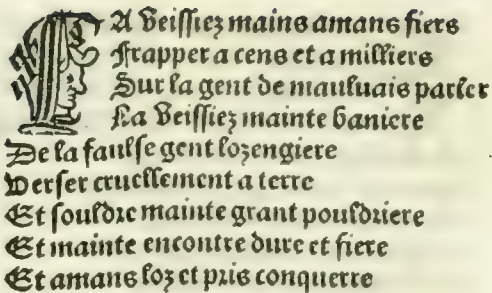 LA veissiez mains amans fiers
Frapper a cens et a milliers
Sur la gent de mauluais parler
La veissiez mainte baniere
De la faulse gent lozengiere
Verser cruellement a terre
Et souldre mainte grant pouldriere
Et mainte encontre dure et fiere
Et amans loz et pris conquerre